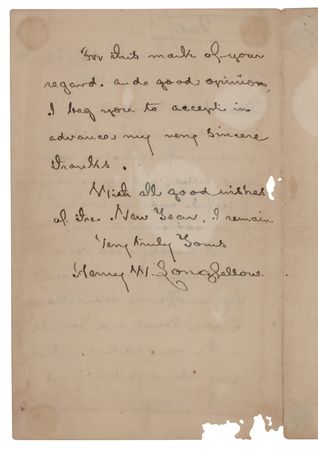 For this mark of your
regard, and good opinion,
I beg you to accept in
advance my very sincere
thanks.
With all good wishes
of the New Year, I remain
Very truly Yours
Henry W. Longfellow.